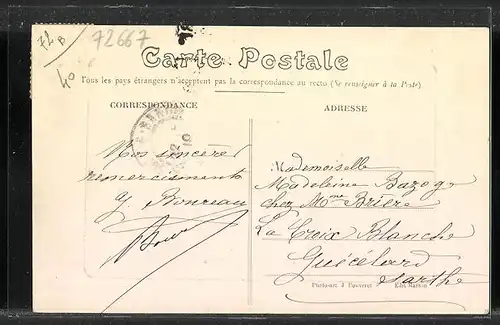 72 B
72667
40
Carte Postale
Tous les pays étrangers n'acceptent pas la correspondance au recto (Se renseigner à la Poste)
CORRESPONDANCE
ADRESSE
Nos sincères
remerciements
Mademoiselle
Madeleine Bazoge
chez Mme Brière
La Croix Blanche
Guécélard
Sarthe